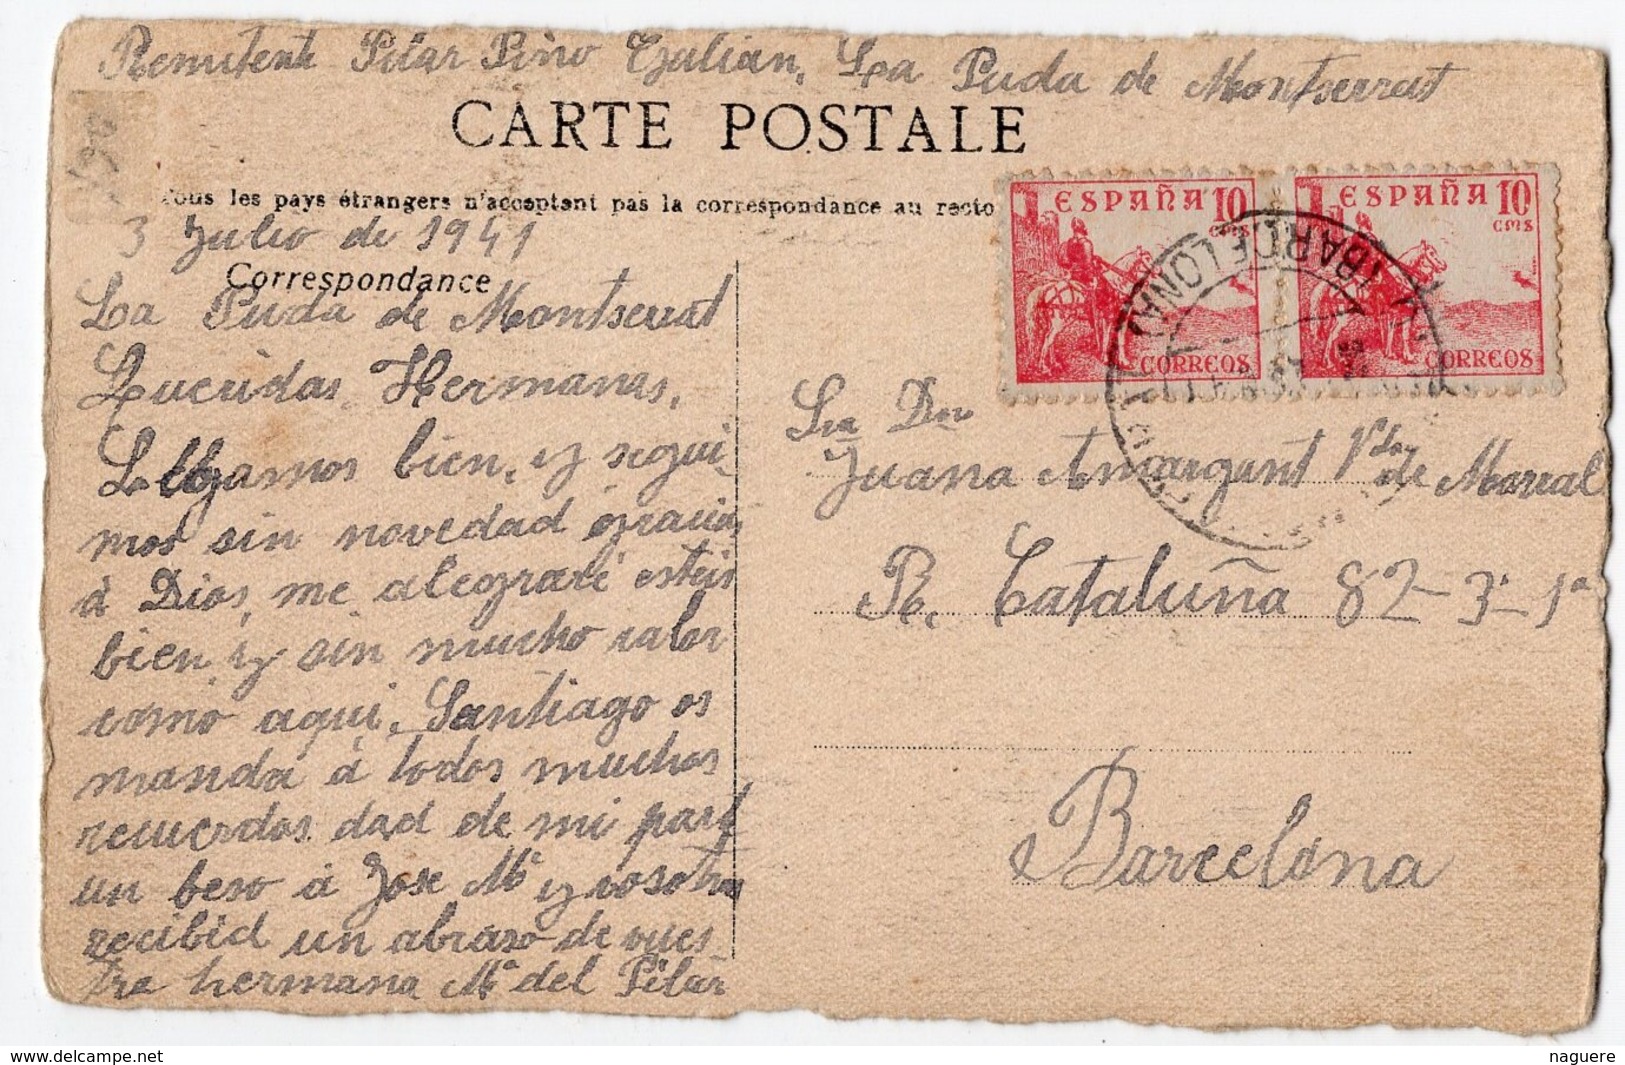 Remitente Pilar Pino Julian, La Puda de Montserrat
CARTE POSTALE
Tous les pays étrangers n'acceptent pas la correspondance au recto
3 Julio de 1941
Correspondance
La Puda de Montserrat
Queridas Hermanas,
Llegamos bien, y segui-
mos sin novedad gracias
á Dios, me alegraré esteis
bien y sin mucho calor
como aqui, Santiago os
manda á todos muchos
recuerdos dad de mi part
un beso á Jose Mª y vosotras
recibid un abrazo de vues
tra hermana Mª del Pilar
ESPAÑA 10 CMS
CORREOS
ESPAÑA 10 CMS
CORREOS
(BARCELONA)
Sra Dn
Juana Amargant Vda de Marral
R. Cataluña 82-3º-1ª
Barcelona
naguere